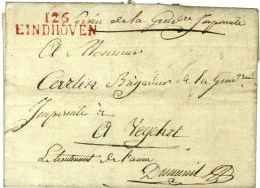 126
EINDHOVEN
Service de la Gendie Impériale
A Monsieur
Cartin Brigadier de la Gendie
Impériale à
A Veghel
Le Lieutenant de l'arme
Dumenil